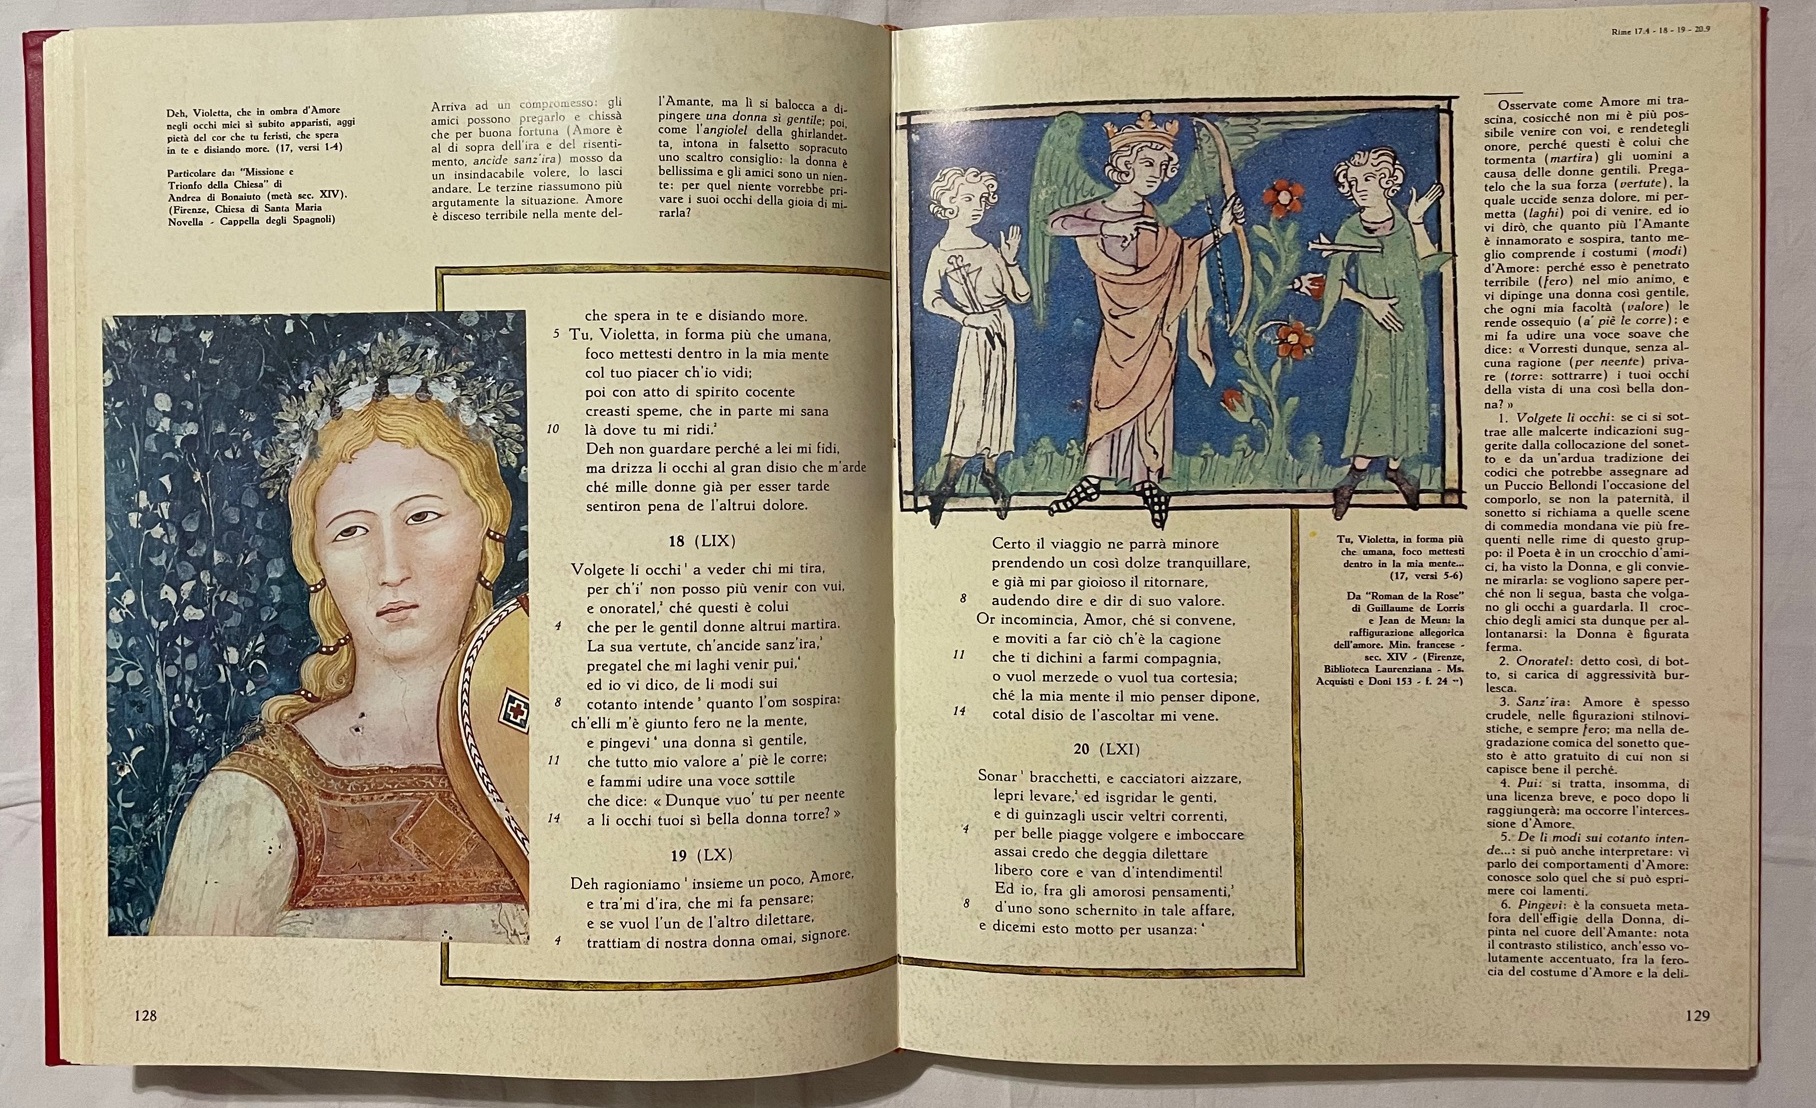 Deh, Violetta, che in ombra d'Amore
negli occhi miei sì subito apparisti, aggi
pietà del cor che tu feristi, che spera
in te e disiando more. (17, versi 1-4)
Particolare da: "Missione e
Trionfo della Chiesa" di
Andrea di Bonaiuto (metà sec. XIV).
(Firenze, Chiesa di Santa Maria
Novella - Cappella degli Spagnoli)
Arriva ad un compromesso: gli
amici possono pregarlo e chissà
che per buona fortuna (Amore è
al di sopra dell'ira e del risenti-
mento, ancide sanz'ira) mosso da
un insindacabile volere, lo lasci
andare. Le terzine riassumono più
argutamente la situazione. Amore
è disceso terribile nella mente del-
l'Amante, ma lì si balocca a di-
pingere una donna sì gentile; poi,
come l'angiolel della ghirlandet-
ta, intona in falsetto sopracuto
uno scaltro consiglio: la donna è
bellissima e gli amici sono un nien-
te: per quel niente vorrebbe pri-
vare i suoi occhi della gioia di mi-
rarla?
che spera in te e disiando more.
5 Tu, Violetta, in forma più che umana,
foco mettesti dentro in la mia mente
col tuo piacer ch'io vidi;
poi con atto di spirito cocente
creasti speme, che in parte mi sana
10 là dove tu mi ridi.²
Deh non guardare perché a lei mi fidi,
ma drizza li occhi al gran disio che m'arde
ché mille donne già per esser tarde
sentiron pena de l'altrui dolore.
18 (LIX)
Volgete li occhi¹ a veder chi mi tira,
per ch'i' non posso più venir con vui,
e onoratel,² ché questi è colui
4 che per le gentil donne altrui martira.
La sua vertute, ch'ancide sanz'ira,³
pregatel che mi laghi venir pui,⁴
ed io vi dico, de li modi sui
8 cotanto intende⁵ quanto l'om sospira:
ch'elli m'è giunto fero ne la mente,
e pingevi⁶ una donna sì gentile,
11 che tutto mio valore a' piè le corre;
e fammi udire una voce sottile
che dice: « Dunque vuo' tu per neente
14 a li occhi tuoi sì bella donna torre? »
19 (LX)
Deh ragioniamo¹ insieme un poco, Amore,
e tra'mi d'ira, che mi fa pensare;
e se vuol l'un de l'altro dilettare,
4 trattiam di nostra donna omai, signore.
128
Rime 17.4 - 18 - 19 - 20.9
Certo il viaggio ne parrà minore
prendendo un così dolze tranquillare,
e già mi par gioioso il ritornare,
8 audendo dire e dir di suo valore.
Or incomincia, Amor, ché si convene,
e moviti a far ciò ch'è la cagione
11 che ti dichini a farmi compagnia,
o vuol merzede o vuol tua cortesia;
ché la mia mente il mio penser dipone,
14 cotal disio de l'ascoltar mi vene.
20 (LXI)
Sonar¹ bracchetti, e cacciatori aizzare,
lepri levare,² ed isgridar le genti,
e di guinzagli uscir veltri correnti,
4 per belle piagge volgere e imboccare
assai credo che deggia dilettare
libero core e van d'intendimenti!
Ed io, fra gli amorosi pensamenti,³
8 d'uno sono schernito in tale affare,
e dicemi esto motto per usanza:⁴
Tu, Violetta, in forma più
che umana, foco mettesti
dentro in la mia mente...
(17, versi 5-6)
Da "Roman de la Rose"
di Guillaume de Lorris
e Jean de Meun: la
raffigurazione allegorica
dell'amore. Min. francese -
sec. XIV - (Firenze,
Biblioteca Laurenziana - Ms.
Acquisti e Doni 153 - f. 24
Osservate come Amore mi tra-
scina, cosicché non mi è più pos-
sibile venire con voi, e rendetegli
onore, perché questi è colui che
tormenta (martira) gli uomini a
causa delle donne gentili. Prega-
telo che la sua forza (vertute), la
quale uccide senza dolore, mi per-
metta (laghi) poi di venire, ed io
vi dirò, che quanto più l'Amante
è innamorato e sospira, tanto me-
glio comprende i costumi (modi)
d'Amore: perché esso è penetrato
terribile (fero) nel mio animo, e
vi dipinge una donna così gentile,
che ogni mia facoltà (valore) le
rende ossequio (a' piè le corre); e
mi fa udire una voce soave che
dice: « Vorresti dunque, senza al-
cuna ragione (per neente) priva-
re (torre: sottrarre) i tuoi occhi
della vista di una così bella don-
na? »
1. Volgete li occhi: se ci si sot-
trae alle malcerte indicazioni sug-
gerite dalla collocazione del sonet-
to e da un'ardua tradizione dei
codici che potrebbe assegnare ad
un Puccio Bellondi l'occasione del
comporlo, se non la paternità, il
sonetto si richiama a quelle scene
di commedia mondana vie più fre-
quenti nelle rime di questo grup-
po: il Poeta è in un crocchio d'ami-
ci, ha visto la Donna, e gli convie-
ne mirarla: se vogliono sapere per-
ché non li segua, basta che volga-
no gli occhi a guardarla. Il croc-
chio degli amici sta dunque per al-
lontanarsi: la Donna è figurata
ferma.
2. Onoratel: detto così, di bot-
to, si carica di aggressività bur-
lesca.
3. Sanz'ira: Amore è spesso
crudele, nelle figurazioni stilnovi-
stiche, e sempre fero; ma nella de-
gradazione comica del sonetto que-
sto è atto gratuito di cui non si
capisce bene il perché.
4. Pui: si tratta, insomma, di
una licenza breve, e poco dopo li
raggiungerà; ma occorre l'interces-
sione d'Amore.
5. De li modi sui cotanto inten-
de...: si può anche interpretare: vi
parlo dei comportamenti d'Amore:
conosce solo quel che si può espri-
mere coi lamenti.
6. Pingevi: è la consueta meta-
fora dell'effigie della Donna, di-
pinta nel cuore dell'Amante: nota
il contrasto stilistico, anch'esso vo-
lutamente accentuato, fra la fero-
cia del costume d'Amore e la deli-
129